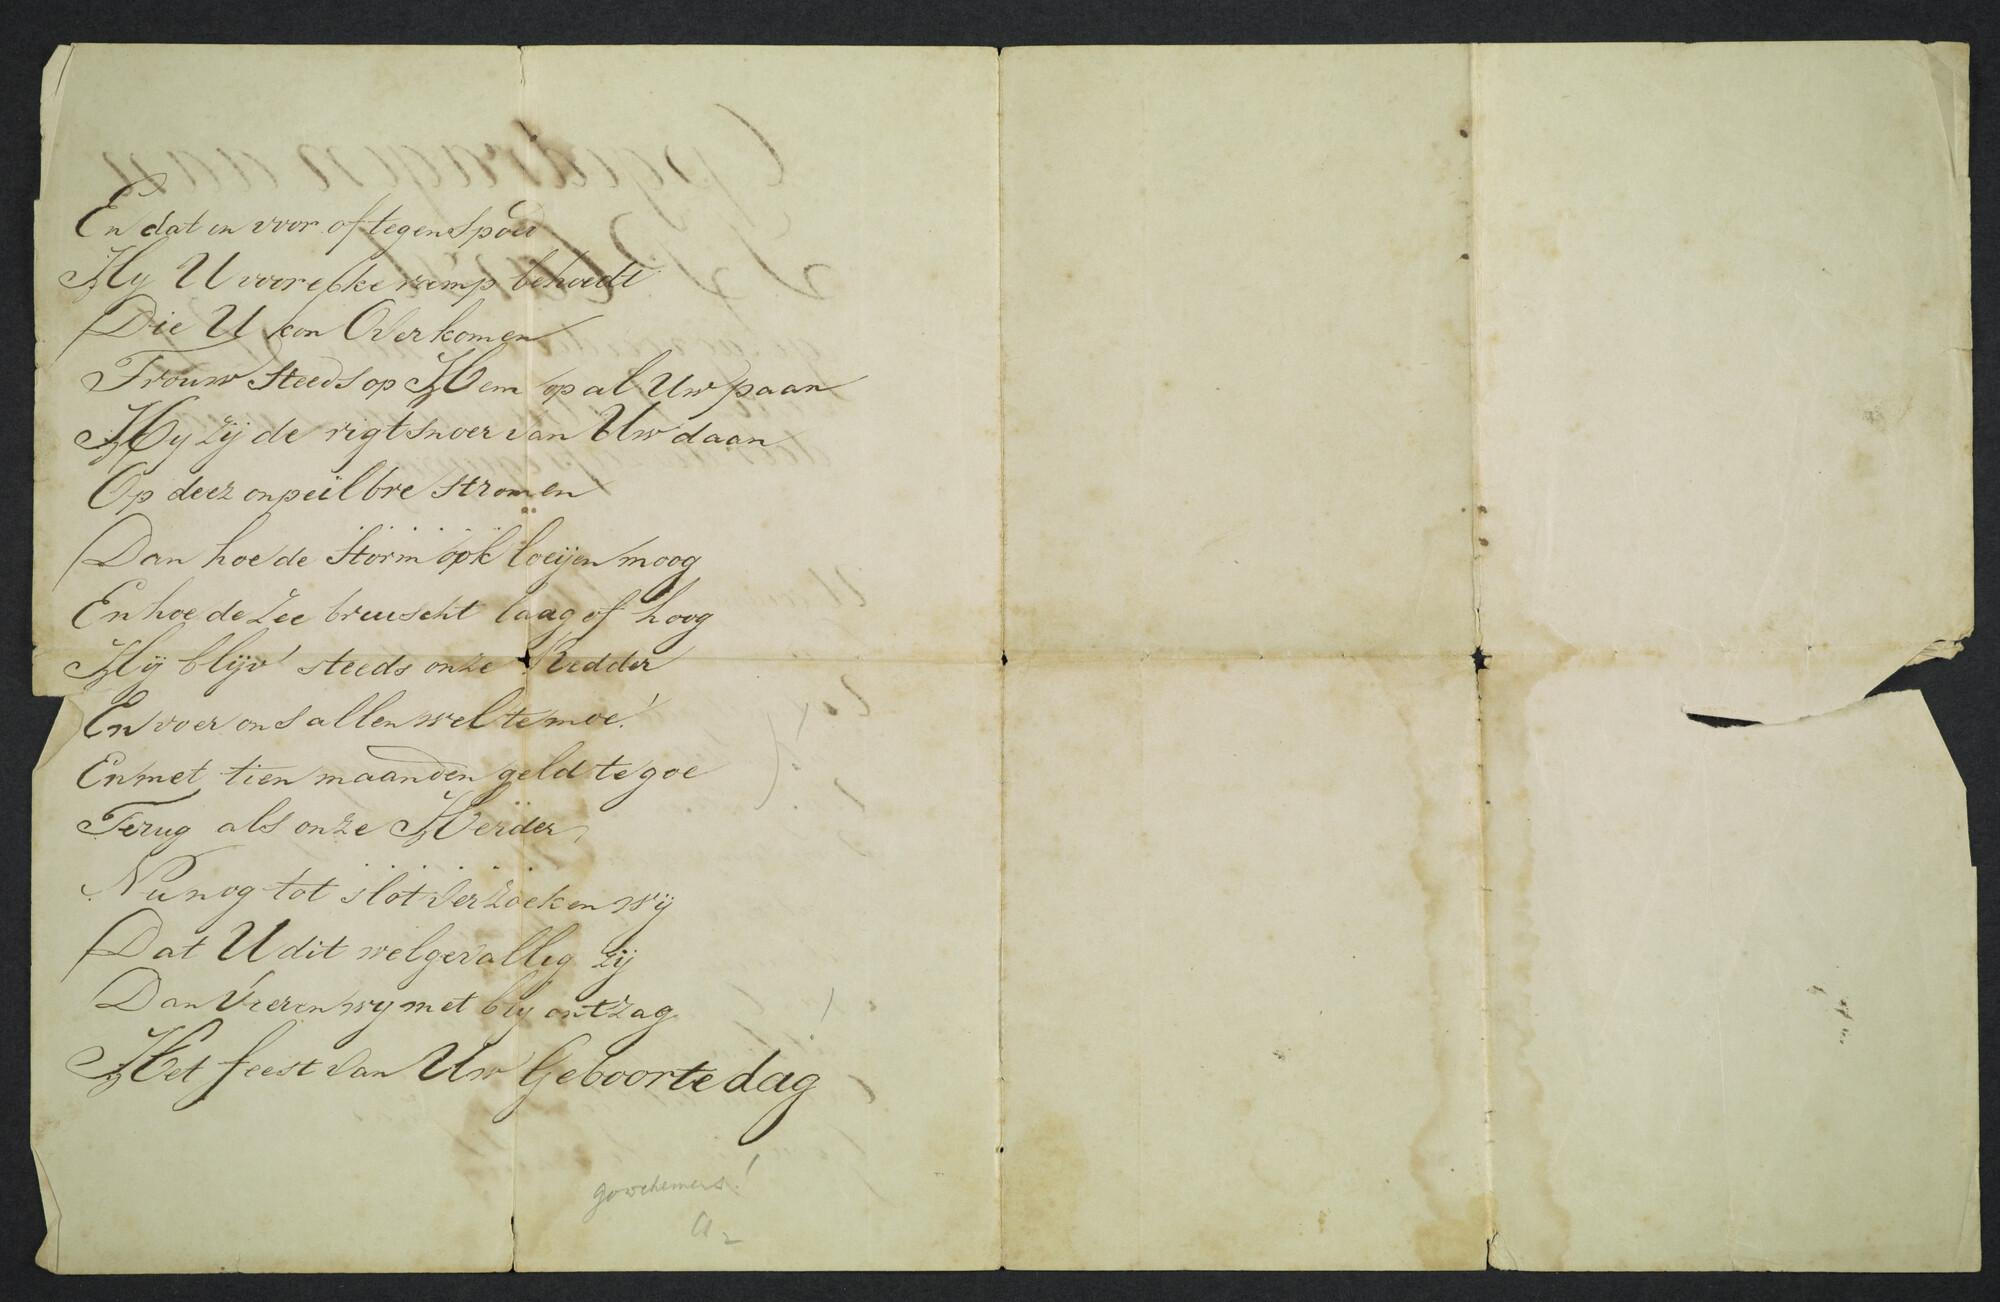 En dat in voor of tegenspoed
Hy U voor elke ramp behoedt
Die U kon Overkomen
Trouw steeds op Hem op al Uw paan
Hy zij de rigtsnoer van Uw daan
Op deez onpeilbre stromen
Dan hoe de Storm ook loeijen moog
En hoe de Zee bruischt laag of hoog
Hij blijv' steeds onze Redder
En voer ons allen wel te moe!
En met tien maanden geld te goe
Terug als onze Herder,
Nu nog tot slot verzoeken wij
Dat U dit welgevallig zij
Dan Vieren wy met bly ontzag
Het feest van Uw Geboortedag